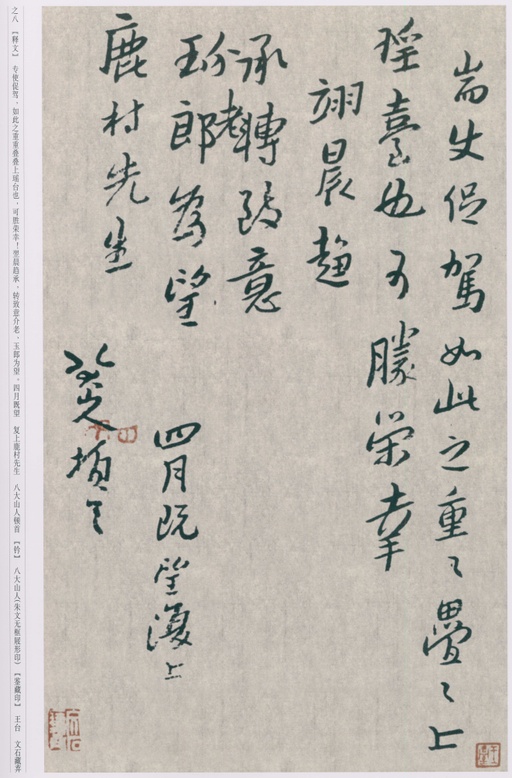 耑使促駕如此之重〻疊〻上
瑶臺也可勝榮幸
翊晨趨
承轉致意
介老玉郎為望
四月既望復上
鹿村先生
八大山人頓首
之八 【释文】 专使促驾,如此之重重叠叠上瑶台也,可胜荣幸!翌晨趋承,转致意介老、玉郎为望。四月既望 复上鹿村先生 八大山人顿首 【钤】 八大山人(朱文无框屐形印) 【鉴藏印】 王台 文石藏弆